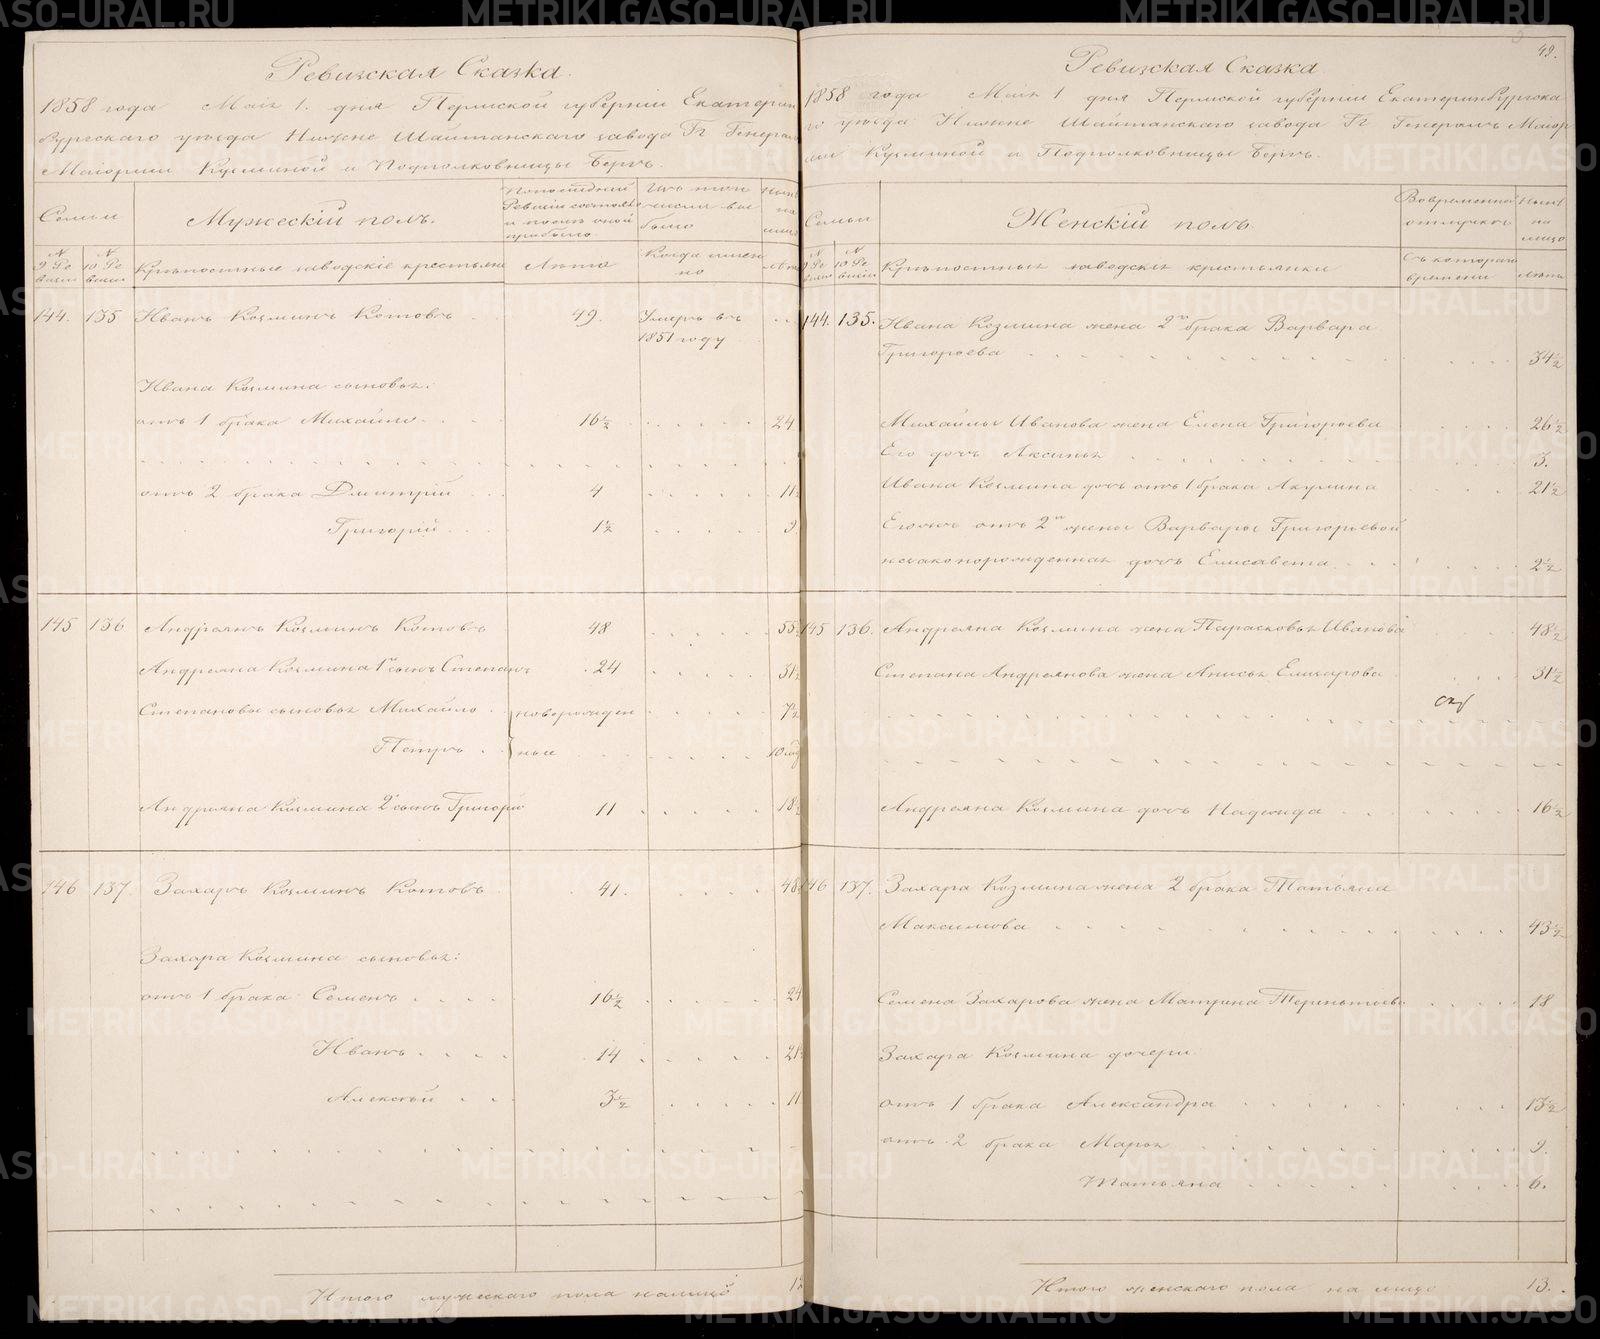 Ревизская Сказка.
1858 года Маія 1. дня Пермской губерніи Екатерин
бургскаго уѣзда Нижне Шайтанскаго завода Гг Генералъ
Маіорши Кузминой и Подполковницы Бергъ.
Семьи
Мужескій полъ.
По послѣдней Ревизіи состояло и послѣ оной прибыло
Изъ того числа выбыло
Нынѣ на лицо
№ 9 Ревизіи
№ 10 Ревизіи
Крѣпостные заводскіе крестьяне
Лѣта
Когда именно
Лѣта
144. 135 Иванъ Козминъ Котовъ 49. Умеръ въ
1851 году
Ивана Козмина сыновья:
отъ 1 брака Михайло 16½ 24
отъ 2 брака Дмитрій 4 11½
Григорій 1½ 9
145 136 Андреянъ Козминъ Котовъ 48 55½
Андреяна Козмина 1й сынъ Степанъ 24 31½
Степановы сыновья Михайло новорожден 7½
Петръ ные 10 нед
Андреяна Козмина 2й сынъ Григорій 11 18½
146 137. Захаръ Козминъ Котовъ 41. 48
Захара Козмина сыновья:
отъ 1 брака Семенъ 16½ 24
Иванъ 14 21½
Алексѣй 3½ 11
Итого мужескаго пола налицо
49.
Ревизская Сказка
1858 года Маія 1 дня Пермской губерніи Екатеринбургска
го уѣзда Нижне Шайтанскаго завода Гг Генералъ Маіор
ши Кузминой и Подполковницы Бергъ.
Семьи
Женскій полъ.
Во временной отлучкѣ
Нынѣ на лицо
№ 9 Ревизіи
№ 10 Ревизіи
Крѣпостныя заводскія крестьянки
Съ котораго времени
Лѣта
144. 135. Ивана Козмина жена 2го брака Варвара
Григорьева 34½
Михайлы Иванова жена Елена Григорьева 26½
Его дочь Аксинья 3.
Ивана Козмина дочь отъ 1 брака Акулина 21½
Егожъ отъ 2й жены Варвары Григорьевой
незаконорожденная дочь Елисавета 2½
145 136. Андреяна Козмина жена Парасковья Иванова 48½
Степана Андреянова жена Анисья Елизарова 31½
Андреяна Козмина дочь Надежда 16½
146 137. Захара Козмина жена 2 брака Татьяна
Максимова 43½
Семена Захарова жена Матрена Терентьева 18
Захара Козмина дочери
отъ 1 брака Александра 13½
отъ 2 брака Марья 9.
Татьяна 6.
Итого женскаго пола на лицо 13.
METRIKI.GASO-URAL.RU